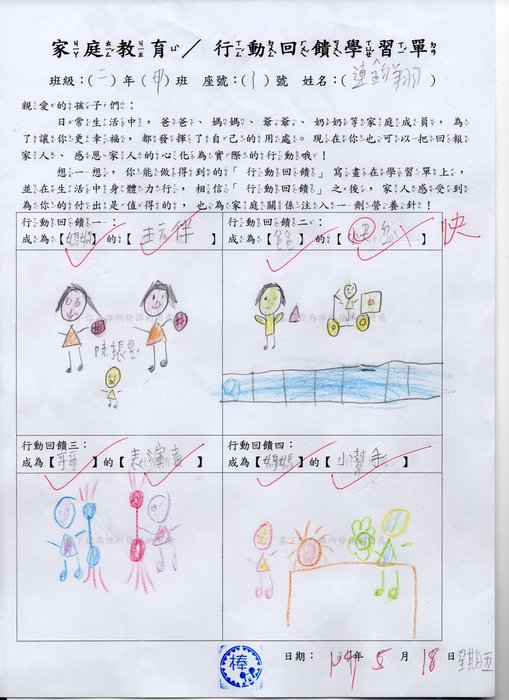 家庭教育／行動回饋學習單
班級：( 二 )年( 甲 )班 座號：( 1 )號 姓名：( 連 翔 )
親愛的孩子們：
日常生活中，爸爸、媽媽、爺爺、奶奶等家庭成員，為
了讓你更幸福，都發揮了自己的用處。現在你也可以把回報
家人、感恩家人的心化為實際的行動哦！
想一想，你能做得到的「行動回饋」寫畫在學習單上，
並在生活中身體力行，相信「行動回饋」之後，家人感受到
為你的付出是值得的，也為家庭關係注入一劑營養針！
行動回饋一： 行動回饋二：
成為【媽媽】的【 伴 】 成為【爸爸】的【 】 快
行動回饋三： 行動回饋四：
成為【哥哥】的【表演者】 成為【媽媽】的【小幫手】
棒 日期： 年 5 月 18 日 星期五